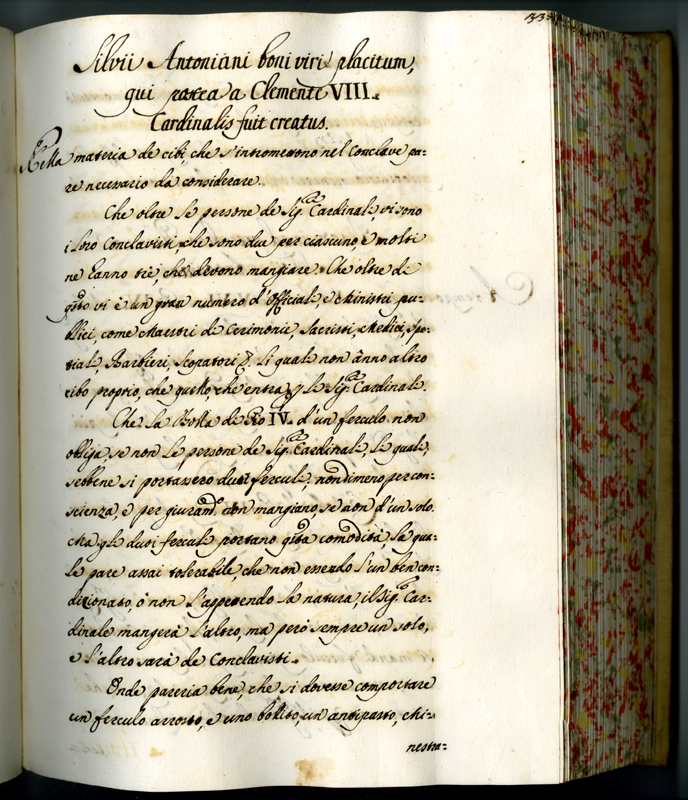 33
Silvii Antoniani boni viri placitum,
qui postea a Clemente VIII.
Cardinalis fuit creatus.
Nella materia de cibi, che s'intromettono nel Conclave pa:
re necessario da considerare.
Che oltre le persone de Sig.ri Cardinali, vi sono
i loro Conclavisti, che sono due per ciascuno, e molti
ne hanno tré, che devono mangiare. Che oltre di
q̃sto vi è un gran numero d'Officiali, e Ministri pu:
blici, come Maestri di Cerimonie, Sacristi, Medici, Spe:
tiali, Barbieri, Scopatori &. li quali non ànno altro
cibo proprio, che quello, che entra p̱ li Sig.ri Cardinali.
Che la Bolla di Pio IV. d'un ferculo non
obliga, se non le persone de Sig.ri Cardinali, li quali,
sebbene si portassero duoi ferculi, nondimeno per con:
scienza, e per giuram.to non mangiano, se non d'un solo.
Ma gli duoi ferculi portano q̃sta comodità, la qua:
le pare assai tolerabile, che non essendo l'un ben con:
dizionato, ò non l'appetendo la natura, il Sig.r Car:
dinale mangerà l'altro, ma però sempre un solo,
e l'altro sarà de Conclavisti.
Onde pareria bene, che si dovesse comportare
un ferculo arrosto, e uno bollito, un antipasto, mi:
nestra: